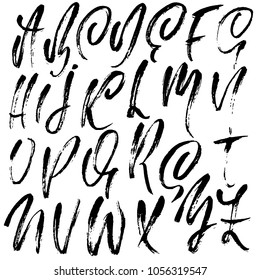 A B C D E F G
H I J K L M N
O P Q R S T
U V W X Y Z
www.shutterstock.com · 1056319547